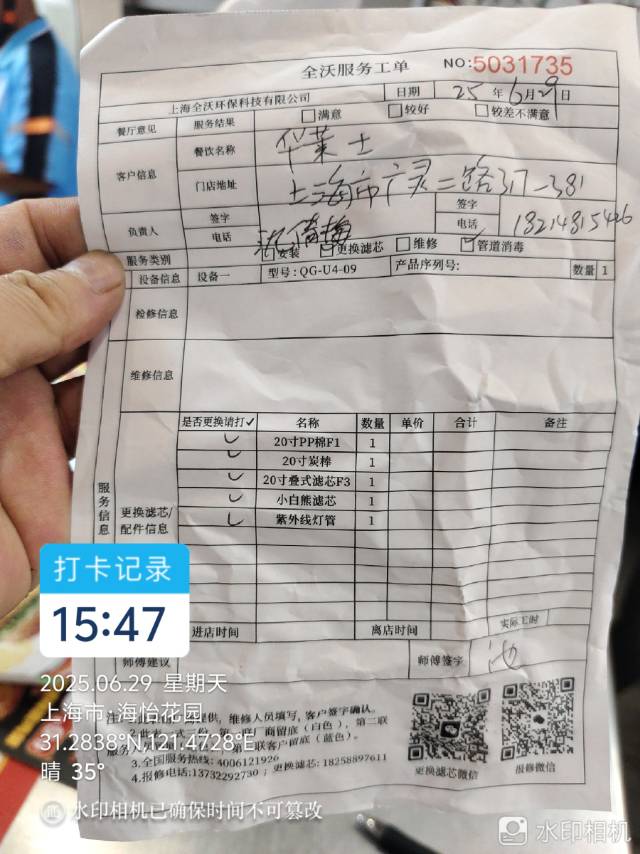 全沃服务工单 NO:5031735
上海全沃环保科技有限公司 日期 25年6月29日
餐厅意见 服务结果 满意 较好 较差不满意
客户信息 餐饮名称 华莱士
门店地址 上海市广灵二路317-381
负责人 签字 签字
电话 电话 18214815426
服务类别 安装 更换滤芯 维修 管道消毒
设备信息 设备一 型号: QG-U4-09 产品序列号: 数量 1
检修信息
维修信息
服务信息
更换滤芯/配件信息
是否更换请打✓ 名称 数量 单价 合计 备注
✓ 20寸PP棉F1 1
✓ 20寸炭棒 1
✓ 20寸叠式滤芯F3 1
✓ 小白熊滤芯 1
✓ 紫外线灯管 1
进店时间 离店时间 实际工时
师傅建议 师傅签字
提供, 维修人员填写, 客户签字确认。
商留底(白色), 第二联
联客户留底(蓝色)。
3.全国服务热线: 4006121920
4.报修电话:13732292730; 更换滤芯: 18258897611
更换滤芯微信 报修微信
打卡记录
15:47
2025.06.29 星期天
上海市·海怡花园
31.2838°N,121.4728°E
晴 35°
水印相机已确保时间不可篡改
水印相机